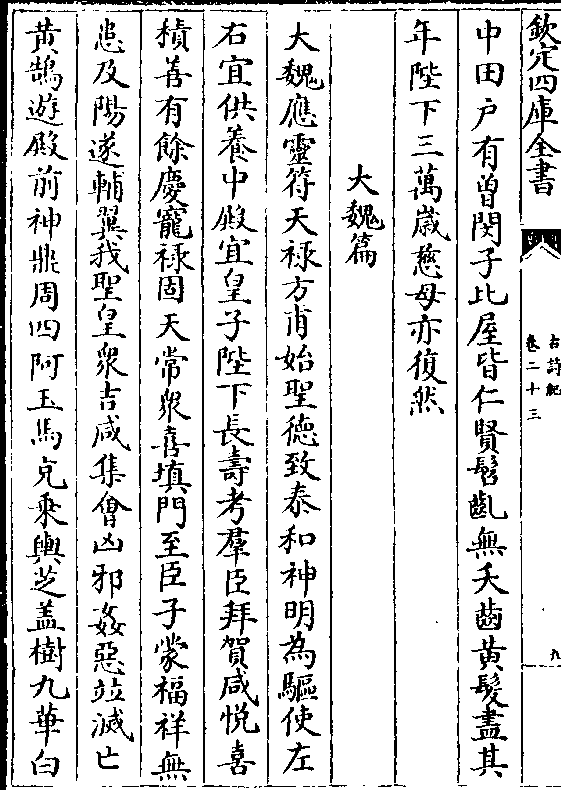 欽定四庫全書
古詩紀
卷二十三
九
中田戸有曽閔子比屋皆仁賢髫齓無夭齒黄髮盡其
年陛下三萬歳慈母亦復然
大魏篇
大魏應靈符天禄方甫始聖德致泰和神明為驅使左
右宜供養中殿宜皇子陛下長壽考羣臣拜賀咸悦喜
積善有餘慶寵禄固天常衆喜填門至臣子蒙福祥無
患及陽遂輔翼我聖皇衆吉咸集㑹凶邪姦惡竝滅亡
黄鵠遊殿前神鼎周四阿玉馬充乗輿芝盖樹九華白